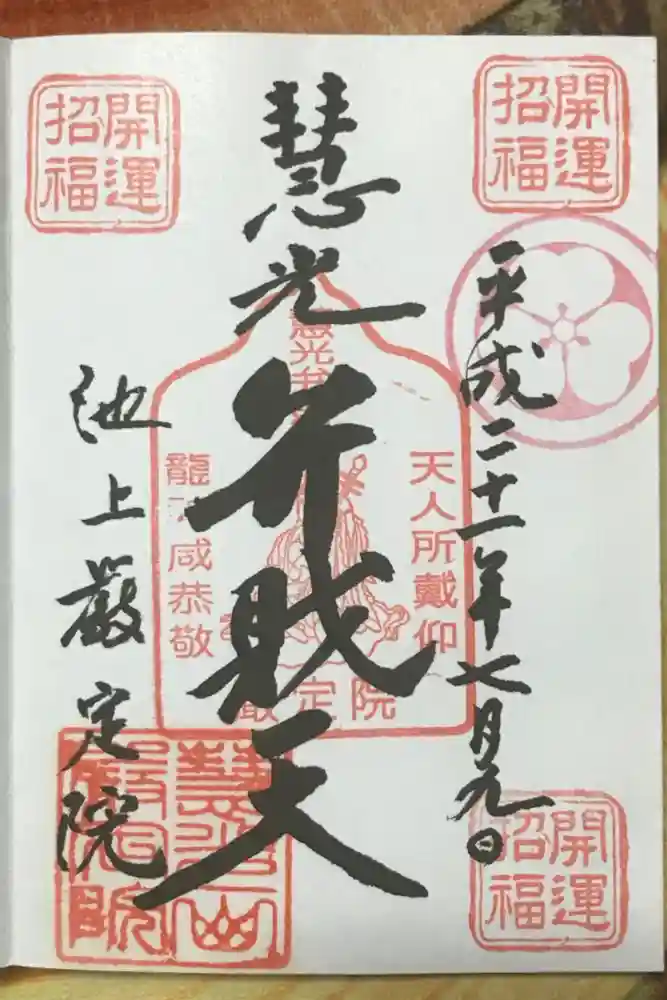 開運
招福
平成二十一年七月九日
開運
招福
慧光弁財天
慧光弁
天人所戴仰
龍
咸恭敬
嚴定院
開運
招福
池上嚴定院
慧光山
嚴定院